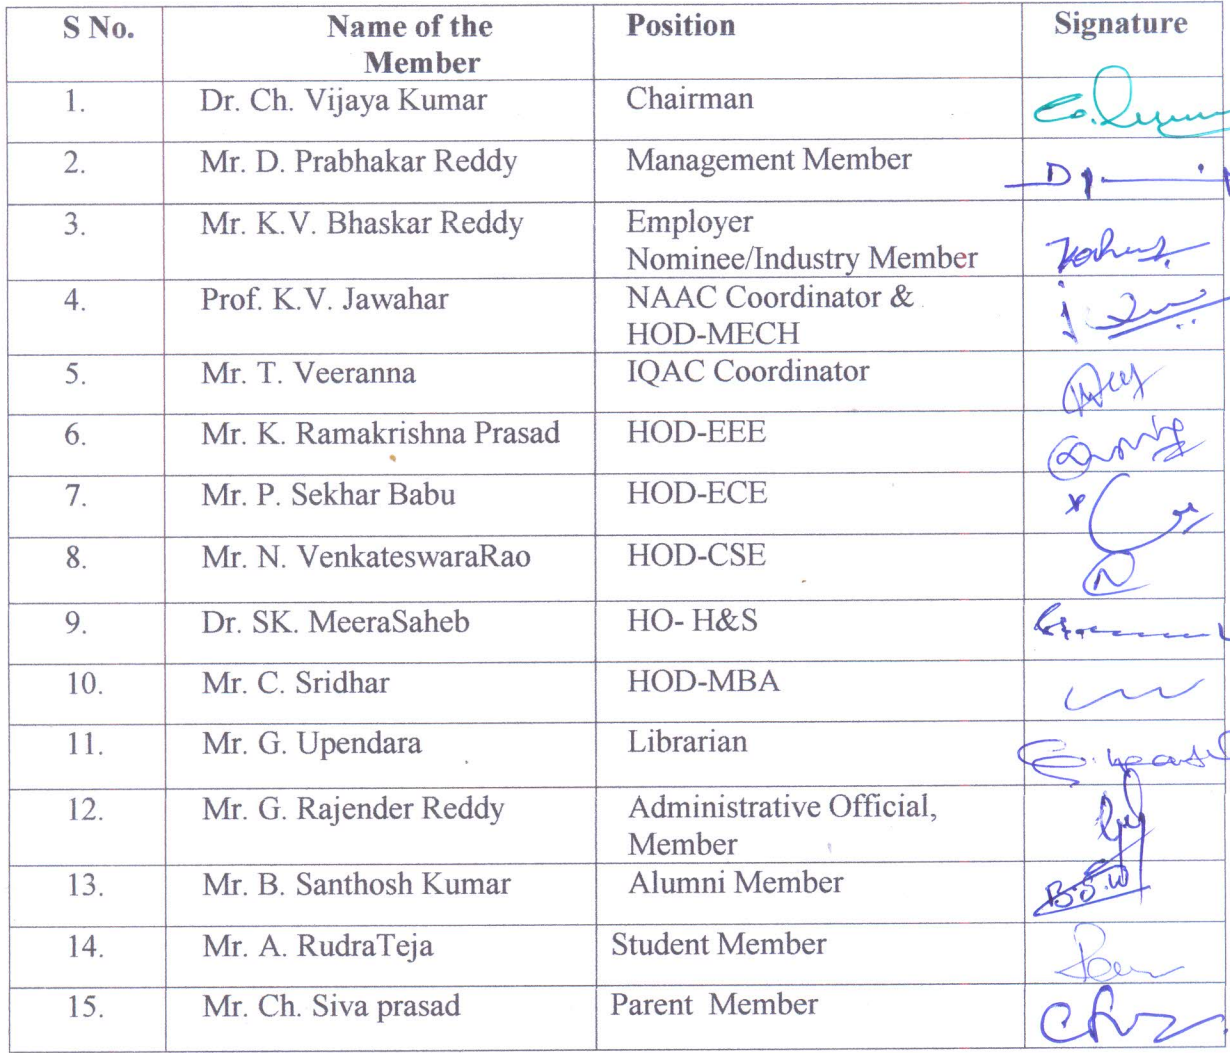 S No. Name of the Member Position Signature
1. Dr. Ch. Vijaya Kumar Chairman
2. Mr. D. Prabhakar Reddy Management Member
3. Mr. K.V. Bhaskar Reddy Employer
Nominee/Industry Member
4. Prof. K.V. Jawahar NAAC Coordinator &
HOD-MECH
5. Mr. T. Veeranna IQAC Coordinator
6. Mr. K. Ramakrishna Prasad HOD-EEE
7. Mr. P. Sekhar Babu HOD-ECE
8. Mr. N. VenkateswaraRao HOD-CSE
9. Dr. SK. MeeraSaheb HO- H&S
10. Mr. C. Sridhar HOD-MBA
11. Mr. G. Upendara Librarian
12. Mr. G. Rajender Reddy Administrative Official,
Member
13. Mr. B. Santhosh Kumar Alumni Member
14. Mr. A. RudraTeja Student Member
15. Mr. Ch. Siva prasad Parent Member